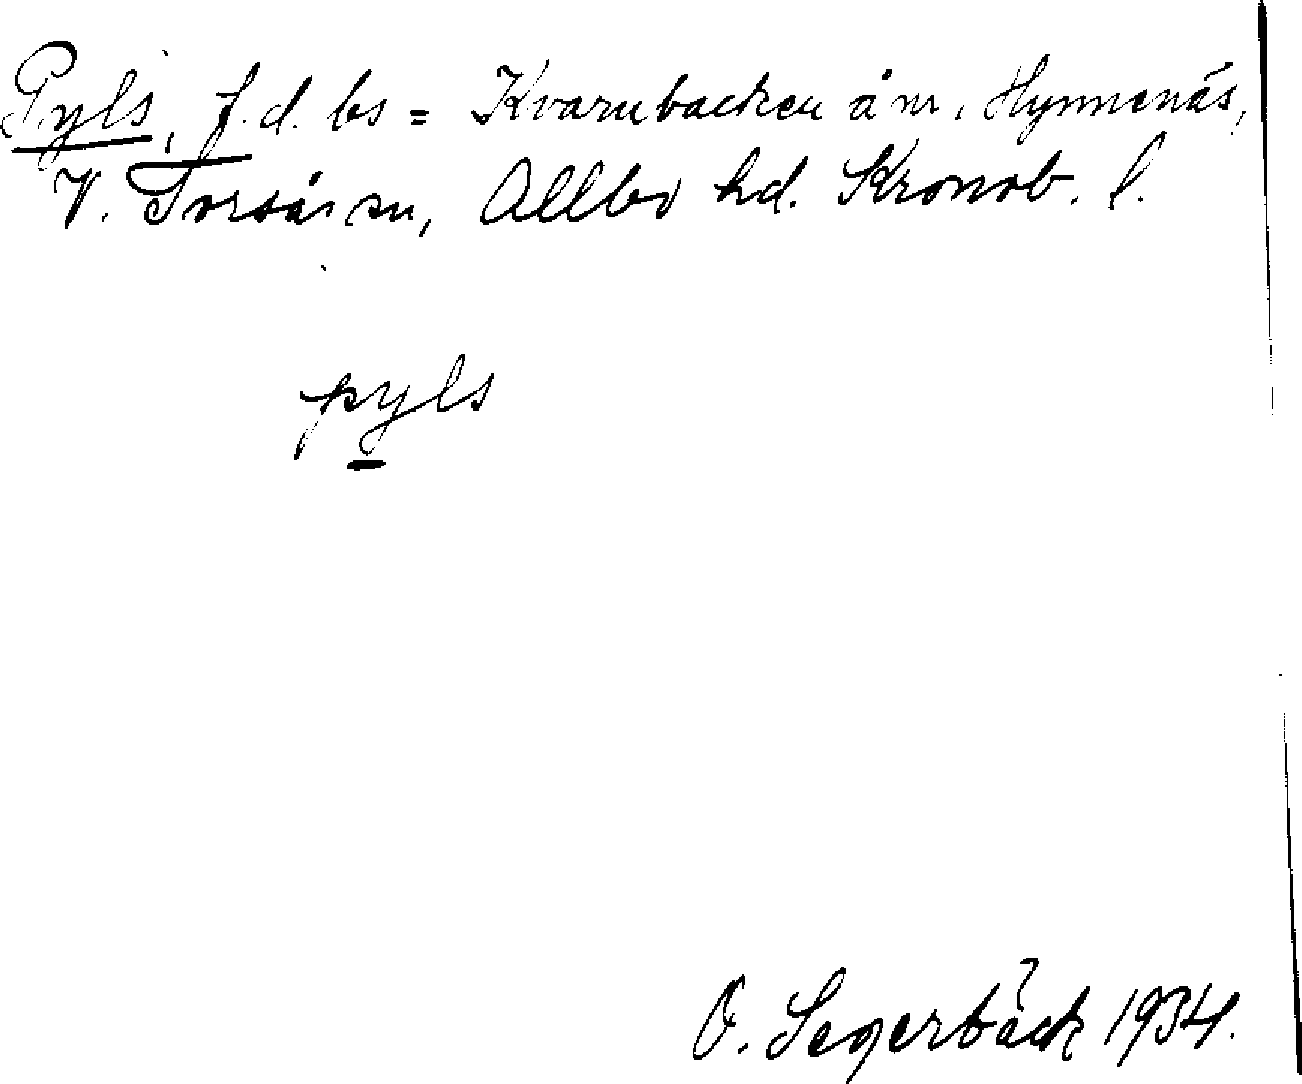 Pyls, f.d. bs = Kvarnbacken å nr. Hymmenäs,
V. Torsås sn, Allbo hd. Kronob. l.
pyls
O. Segerbäck 1934.